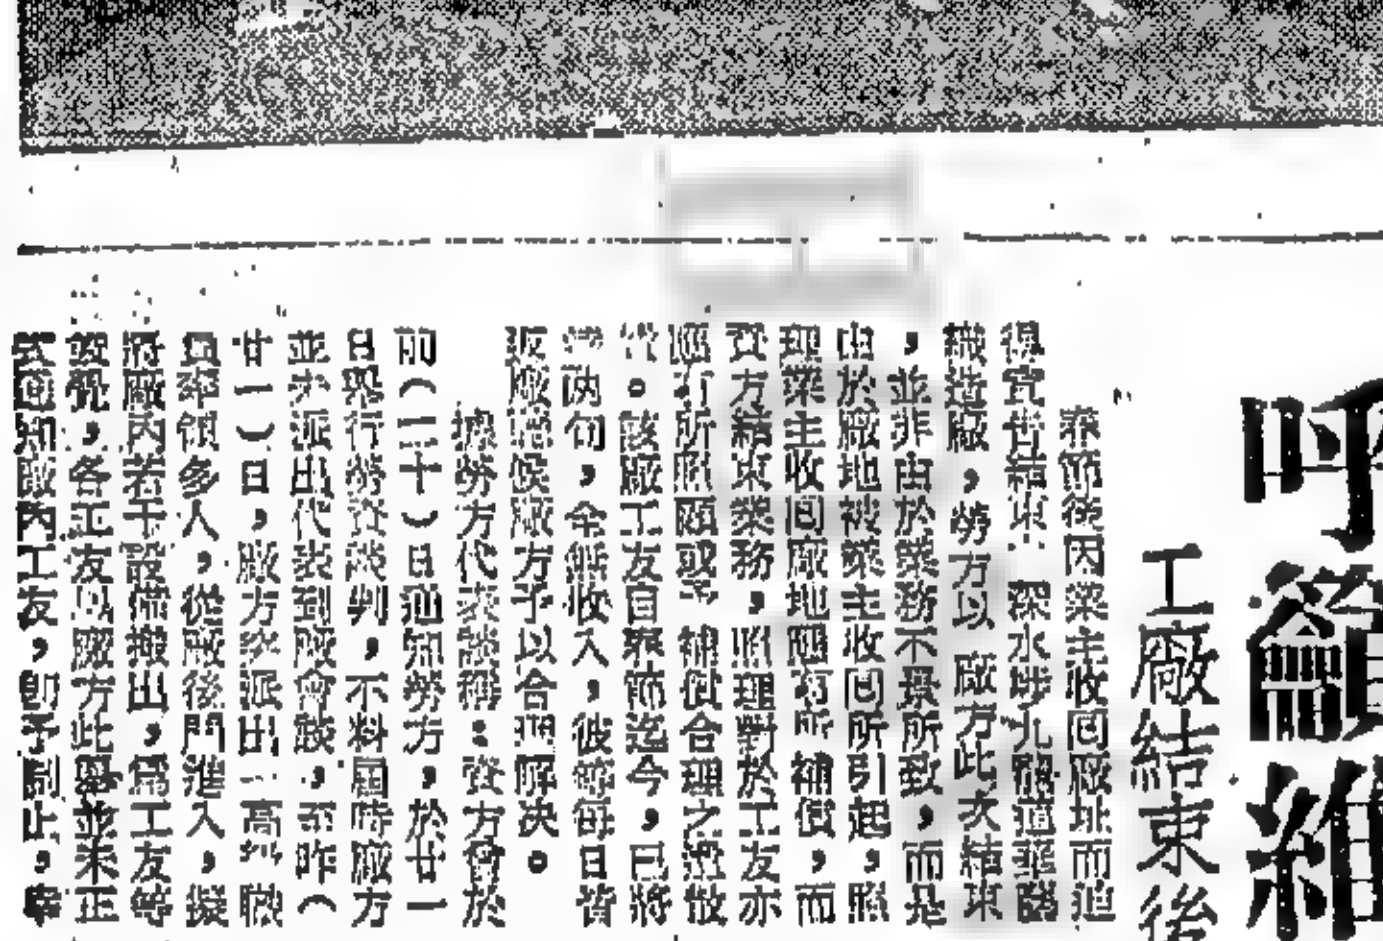 呼籲維
工廠結束後
春節後因業主收回廠址而迫
得宣告結束 深水埗九龍道華
織造廠，勞方以 廠方此次結束
，並非由於業務不景所致，而是
由於廠地被業主收回所引起，照
理業主收回廠地應有所補償，而
資方結束業務，照理對於工友亦
應有所照顧或予 補償合理之遣散
。該廠工友自春節迄今，已將
兩旬，全無收入，彼等每日皆
返廠等候廠方予以合理解决。
據勞方代表談稱：資方曾於
前（二十）日通知勞方，於廿一
日舉行勞資談判，不料屆時廠方
並未派出代表到廠會談，至昨（
廿一）日，廠方突派出一高級職
員率領多人，從廠後門進入，擬
將廠內若干設備搬出，爲工友等
發覺，各工友以廠方此舉並未正
式通知廠內工友，卽予制止，